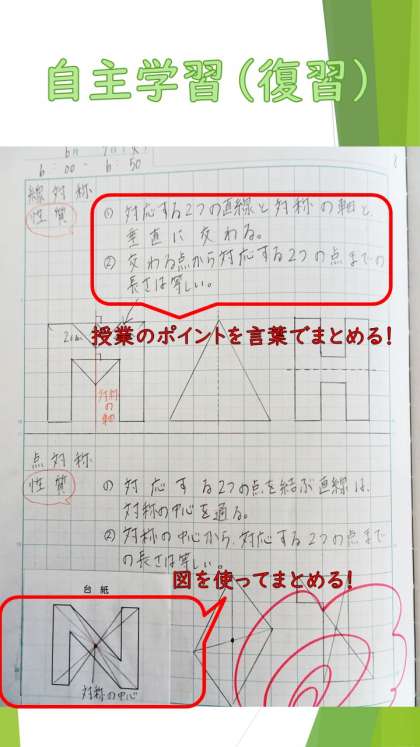 自主学習(復習)
6:00 ~ 6:50
線対称
性質
① 対応する2つの直線と対称の軸と、
垂直に交わる。
② 交わる点から対応する2つの点までの
長さは等しい。
授業のポイントを言葉でまとめる!
2cm
対称の軸
点対称
性質
① 対応する2つの点を結ぶ直線は、
対称の中心を通る。
② 対称の中心から、対応する2つの点まで
の長さは等しい。
図を使ってまとめる!
台紙
対称の中心